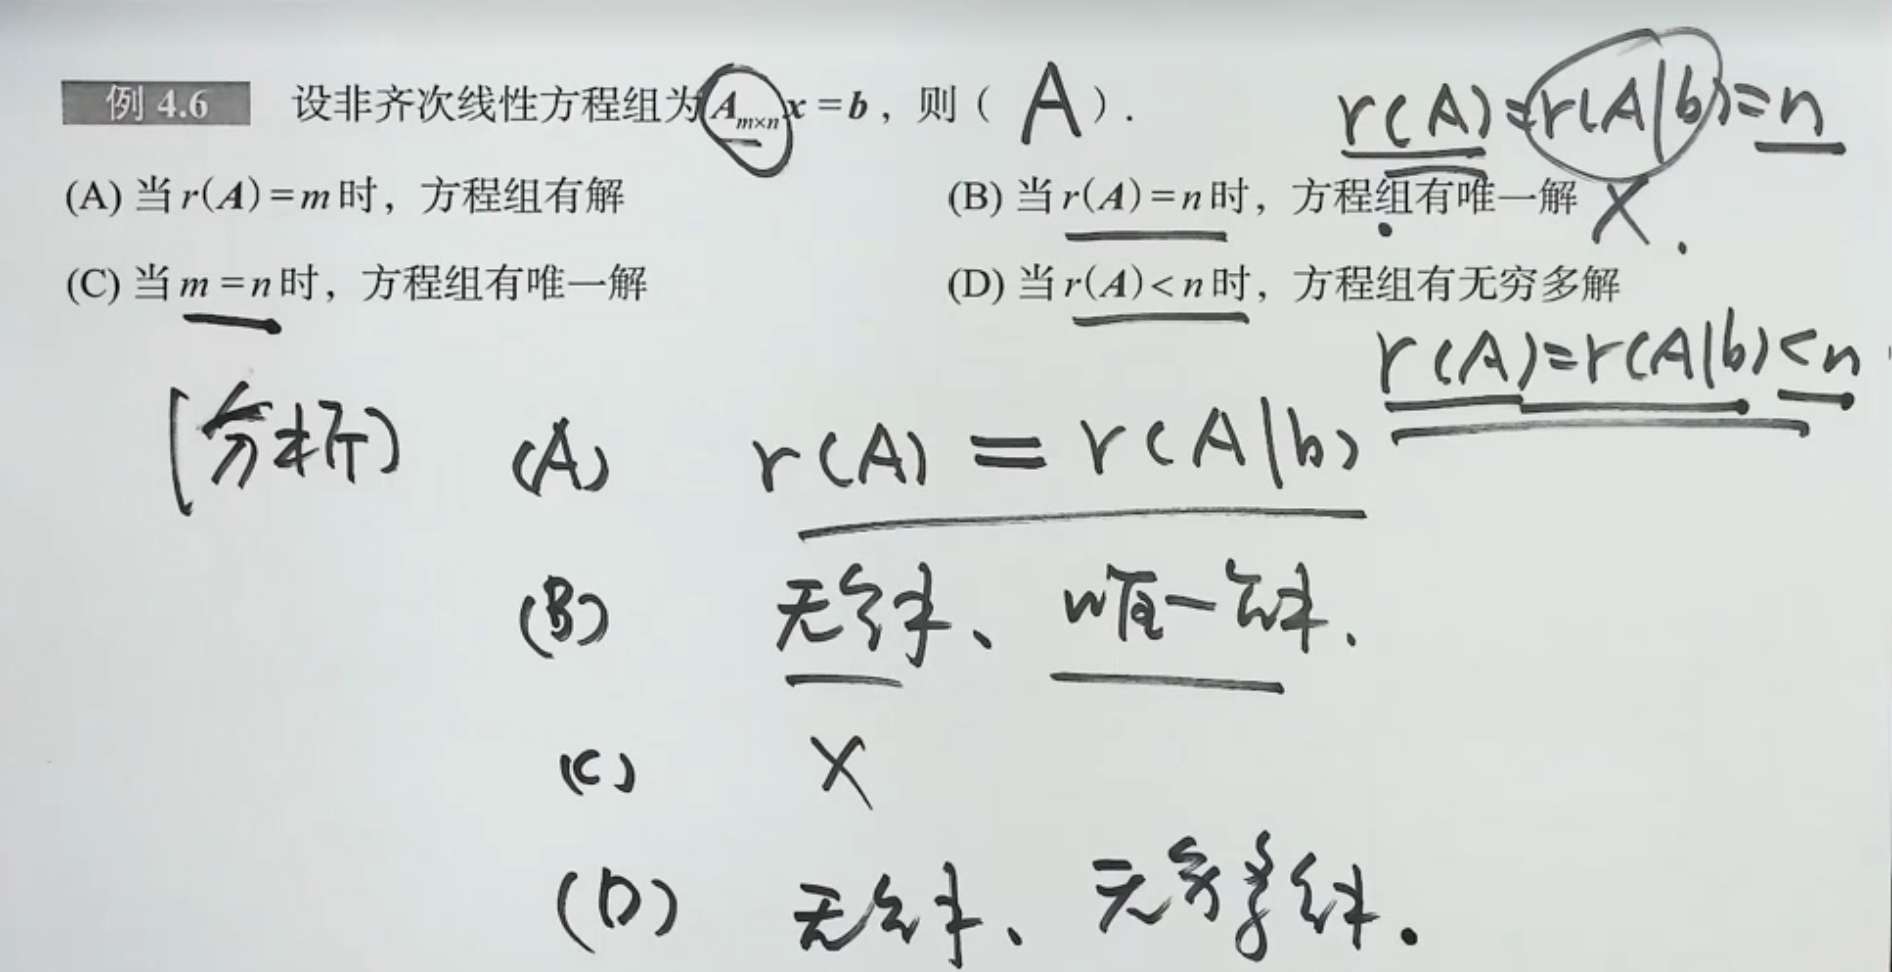 例 4.6 设非齐次线性方程组为 Aₘₓₙx = b，则（ A ）.
r(A)=r(A|b)=n
(A) 当 r(A) = m 时，方程组有解 (B) 当 r(A) = n 时，方程组有唯一解 ×.
(C) 当 m = n 时，方程组有唯一解 (D) 当 r(A) < n 时，方程组有无穷多解
r(A)=r(A|b)<n
[分析] (A) r(A) = r(A|b)
(B) 无解、唯一解.
(C) ×
(D) 无解、无穷多解.